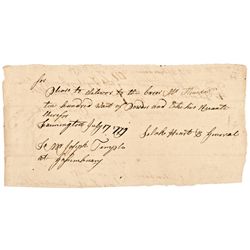 Sir
Please to deliver to the bearer Mr
two hundred Wait of Powder and take his Receipt
therefor
Farmington July 17 1779 Selah Heart B General
To Mr Joseph Temple
at